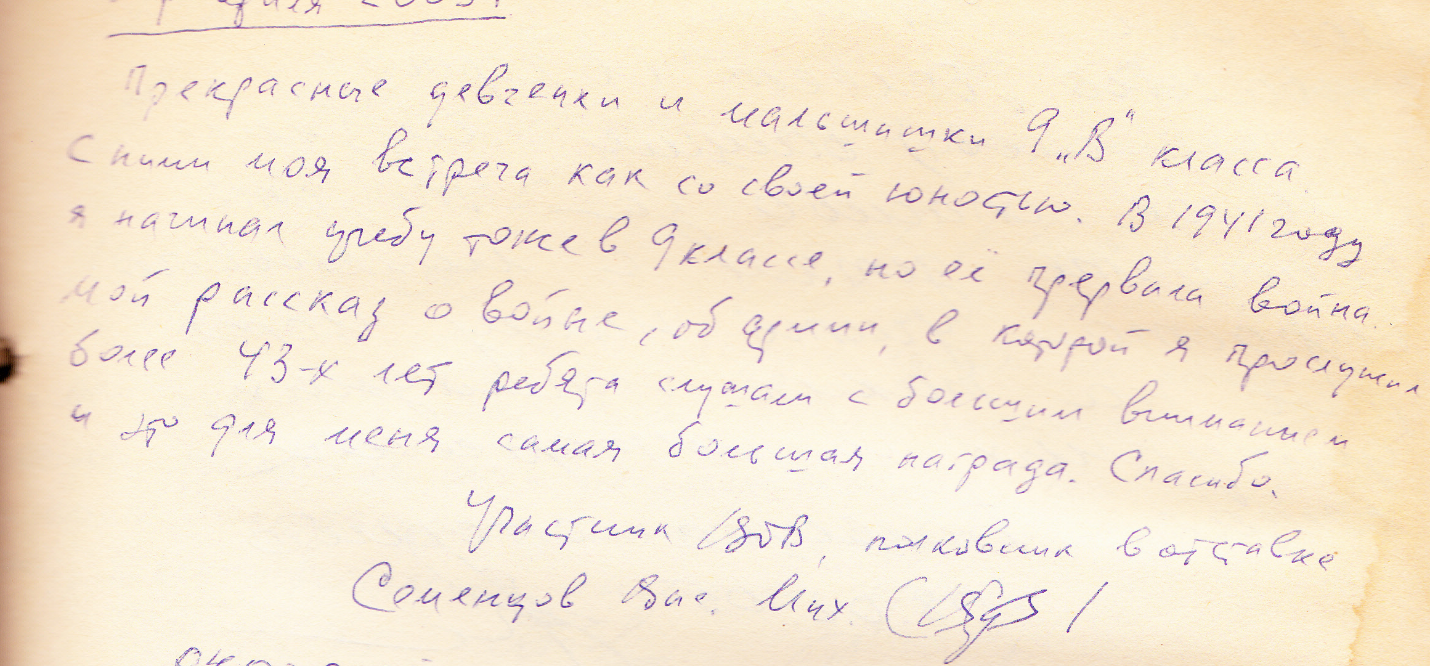 апреля 2005г.
Прекрасные девченки и мальчишки 9 „В" класса.
С ними моя встреча как со своей юностью. В 1941 году
я начинал учебу тоже в 9 классе, но её прервала война.
Мой рассказ о войне, об армии, в которой я прослужил
более 43-х лет ребята слушали с большим вниманием
и это для меня самая большая награда. Спасибо.
Участник ВОВ, полковник в отставке
Семенцов Мих.